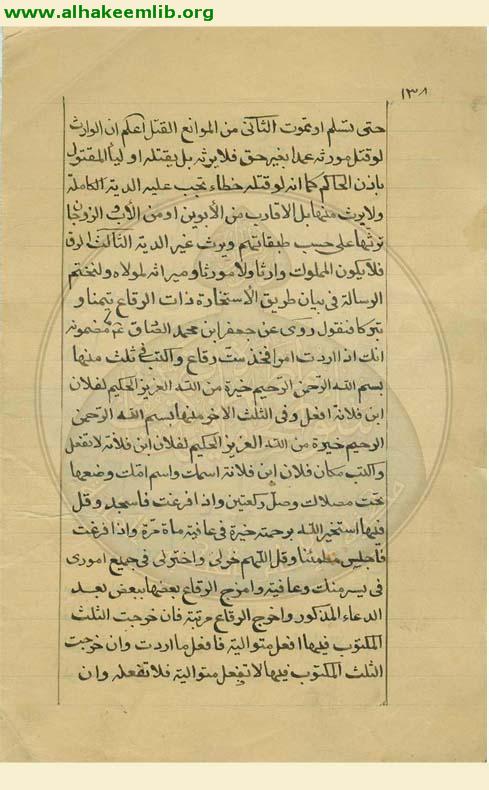 www.alhakeemlib.org
١٣٨
حتى تسلم او تموت الثانى من الموانع القتل اعلم ان الوارث
لو قتل مورثه عمدا بغير حق فلا يرثه بل يقتله اولياء المقتول
باذن الحاكم كما انه لو قتله خطاء تجب عليه الدية الكاملة
ولا يرث منها بل الاقارب من الأبوين او من الأب و الزوجان
ترثها على حسب طبقاتهم ويرث غير الدية الثالث الرق
فلا يكون المملوك وارثا ولا مورثا وميراثه لمولاه ولنختم
الرسالة فى بيان طريق الأستخارة ذات الرقاع تيمنا و
تبركا فنقول روى عن جعفر ابن محمد الصادق مضمونه
انك اذا اردت امرا فخذ ست رقاع واكتب فى ثلث منها
بسم الله الرحمن الرحيم خيرة من الله العزيز الحكيم لفلان
ابن فلانة افعل وفى الثلث الاخر منها بسم الله الرحمن
الرحيم خيرة من الله العزيز الحكيم لفلان ابن فلانة لا تفعل
واكتب مكان فلان ابن فلانة اسمك واسم امك وضعها
تحت مصلاك وصل ركعتين واذا فرغت فاسجد وقل
فيها استخير الله برحمته خيرة فى عافية مأة مرة واذا فرغت
فاجلس مطمئنا وقل اللهم خر لى واختر لى فى جميع امورى
فى يسر منك وعافية وامزج الرقاع بعضها ببعض بعد
الدعاء المذكور واخرج الرقاع مرتبة فان خرجت الثلث
المكتوب فيها افعل متوالية فافعل ما اردت وان خرجت
الثلث المكتوب فيها لا تفعل متوالية فلا تفعله وان